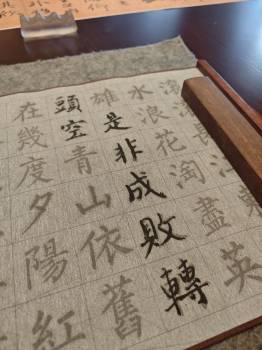 滾滾長江
水浪花淘盡英
雄是非成敗轉
頭空青山依舊
在幾度夕陽紅